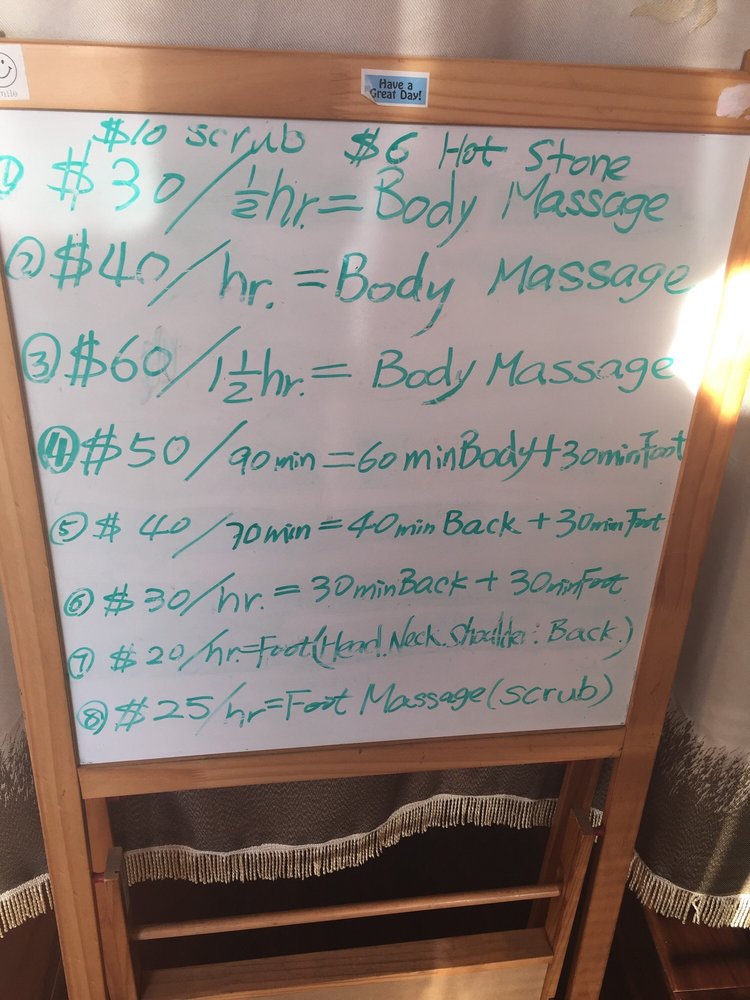 mile
Have a
Great Day!
$10 scrub $6 Hot Stone
① $30/½hr.=Body Massage
② $40/hr.=Body Massage
③ $60/1½hr.= Body Massage
④ $50/90min=60minBody+30minFoot
⑤ $ 40/70min=40minBack+30minFoot
⑥ $30/hr.=30minBack+30minFoot
⑦ $20/hr.=Foot(Head.Neck.Shoulder.Back.)
⑧ $25/hr=Foot Massage(scrub)